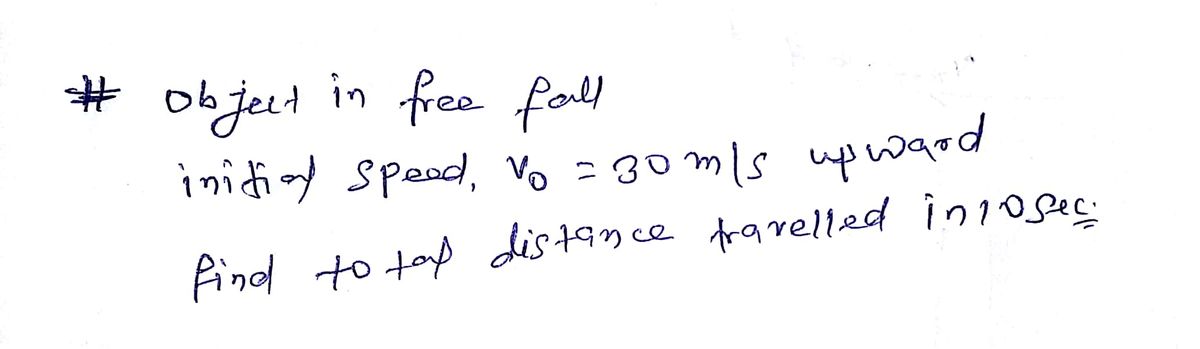 # object in free fall
initial speed, v₀ = 30 m/s upward
find total distance travelled in 10 sec.